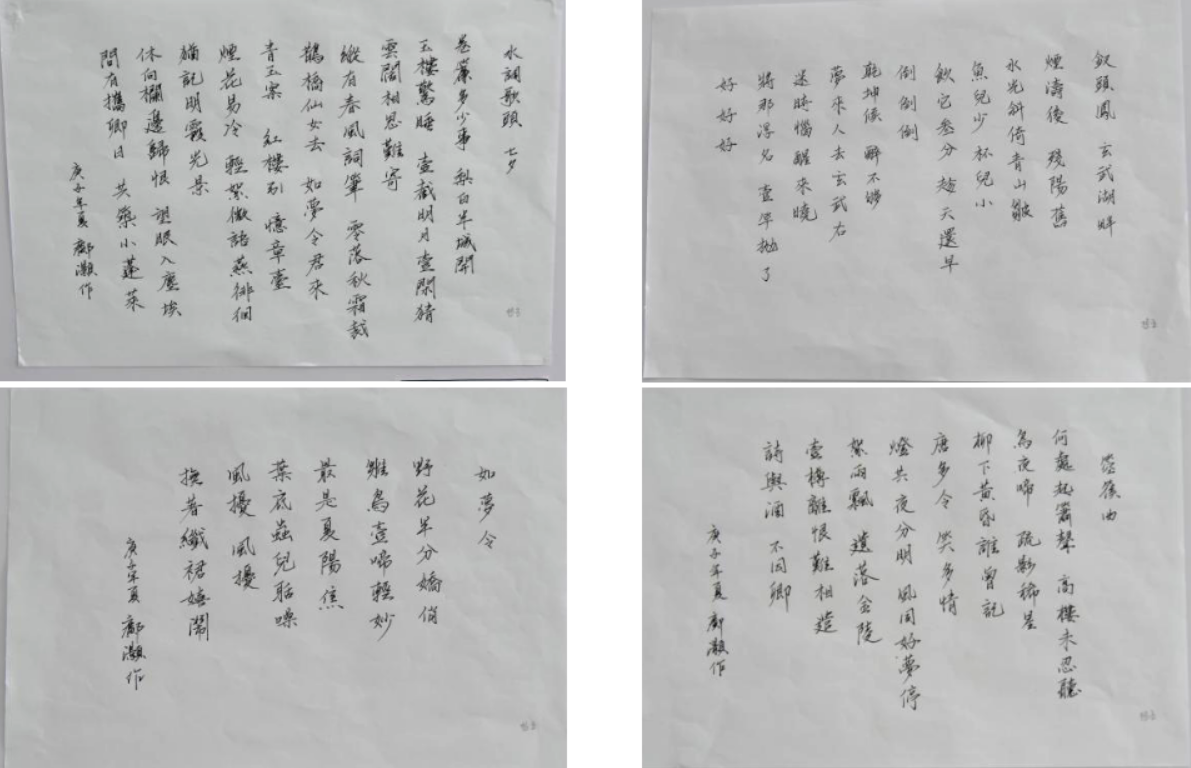 水調歌頭 七夕
卷簾多少事 梨白半城開
玉樓驚睡 壹截明月壹閑猜
雲闊相思難寄
縱有春風詞筆 零落秋霜裁
鵲橋仙女去 如夢令君來
青玉案 紅樓別 憶章臺
煙花易冷 輕絮微語燕徘徊
猶記明霞光景
休向欄邊歸恨 望眼入塵埃
問有攜卿日 共築小蓬萊
庚子年夏 鄺灝作
釵頭鳳 玄武湖畔
煙濤後 殘陽舊
水光斜倚青山皺
魚兒少 杯兒小
飲它叁分 趁天還早
倒 倒 倒
乾坤候 醉不夠
夢來人去玄武右
迷時惱 醒來曉
將那浮名 壹筆拋了
好 好 好
如夢令
野花半分嬌俏
雛鳥壹啼輕妙
最是夏陽焦
葉底蟲兒聒噪
風擾 風擾
撫著纖裙嬉鬧
庚子年夏 鄺灝作
箜篌曲
何處起簫聲 高樓未忍聽
烏夜啼 疏影稀星
柳下黃昏誰曾記
唐多令 笑多情
燈共夜分明 風同好夢停
絮雨飄 遺落金陵
壹樽離恨難相遣
詩與酒 不因卿
庚子年夏 鄺灝作